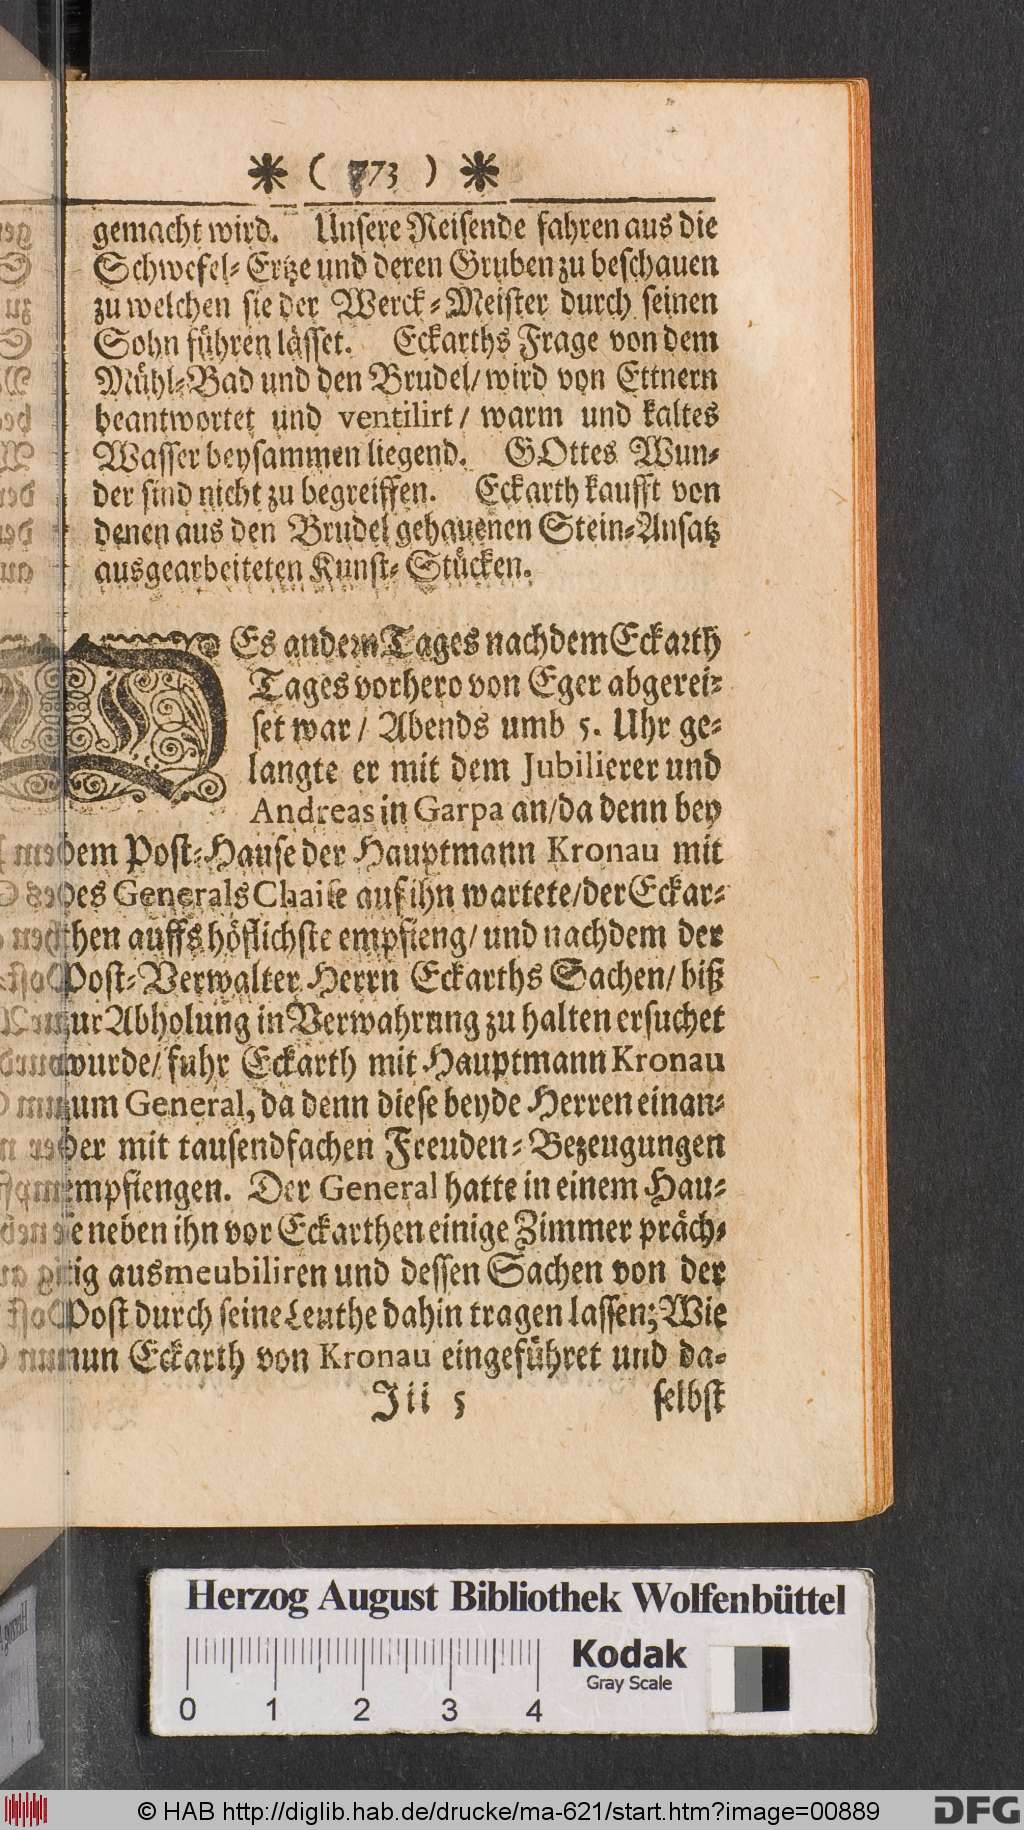 * ( 773 ) *
gemacht wird. Unsere Reisende fahren aus die
Schwefel-Ertze und deren Gruben zu beschauen
zu welchen sie der Werck-Meister durch seinen
Sohn führen lässet. Eckarths Frage von dem
Mühl-Bad und den Brudel/ wird von Ettnern
beantwortet und ventilirt/ warm und kaltes
Wasser beysammen liegend. GOttes Wun-
der sind nicht zu begreiffen. Eckarth kaufft von
denen aus den Brudel gehauenen Stein-Ansatz
ausgearbeiteten Kunst-Stücken.
DEs andern Tages nachdem Eckarth
Tages vorhero von Eger abgerei-
set war/ Abends umb 5. Uhr ge-
langte er mit dem Jubilierer und
Andreas in Garpa an/ da denn bey
dem Post-Hause der Hauptmann Kronau mit
des Generals Chaise auf ihn wartete/ der Eckar-
then auffs höflichste empfieng/ und nachdem der
Post-Verwalter Herrn Eckarths Sachen/ biß
zur Abholung in Verwahrung zu halten ersuchet
wurde/ fuhr Eckarth mit Hauptmann Kronau
zum General, da denn diese beyde Herren einan-
der mit tausendfachen Freuden-Bezeugungen
empfiengen. Der General hatte in einem Hau-
se neben ihn vor Eckarthen einige Zimmer präch-
tig ausmeubiliren und dessen Sachen von der
Post durch seine Leuthe dahin tragen lassen; Wie
nun Eckarth von Kronau eingeführet und da-
Iii 5 selbst
Herzog August Bibliothek Wolfenbüttel
Kodak
Gray Scale
0 1 2 3 4
© HAB http://diglib.hab.de/drucke/ma-621/start.htm?image=00889
DFG